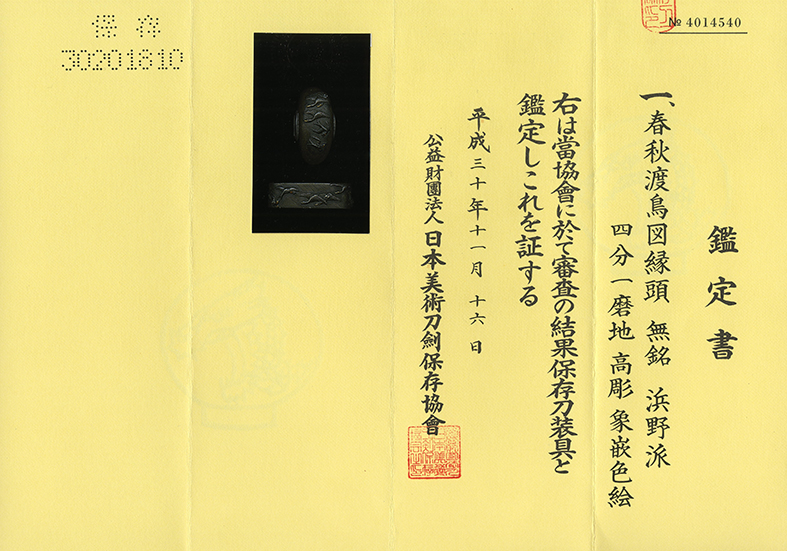 № 4014540
鑑定書
一、春秋渡鳥図縁頭 無銘 浜野派
四分一磨地 高彫 象嵌色絵
右は當協會に於て審査の結果保存刀装具と
鑑定しこれを証する
平成三十年十一月 十六 日
公益財團法人 日本美術刀剣保存協會
保存
30201810